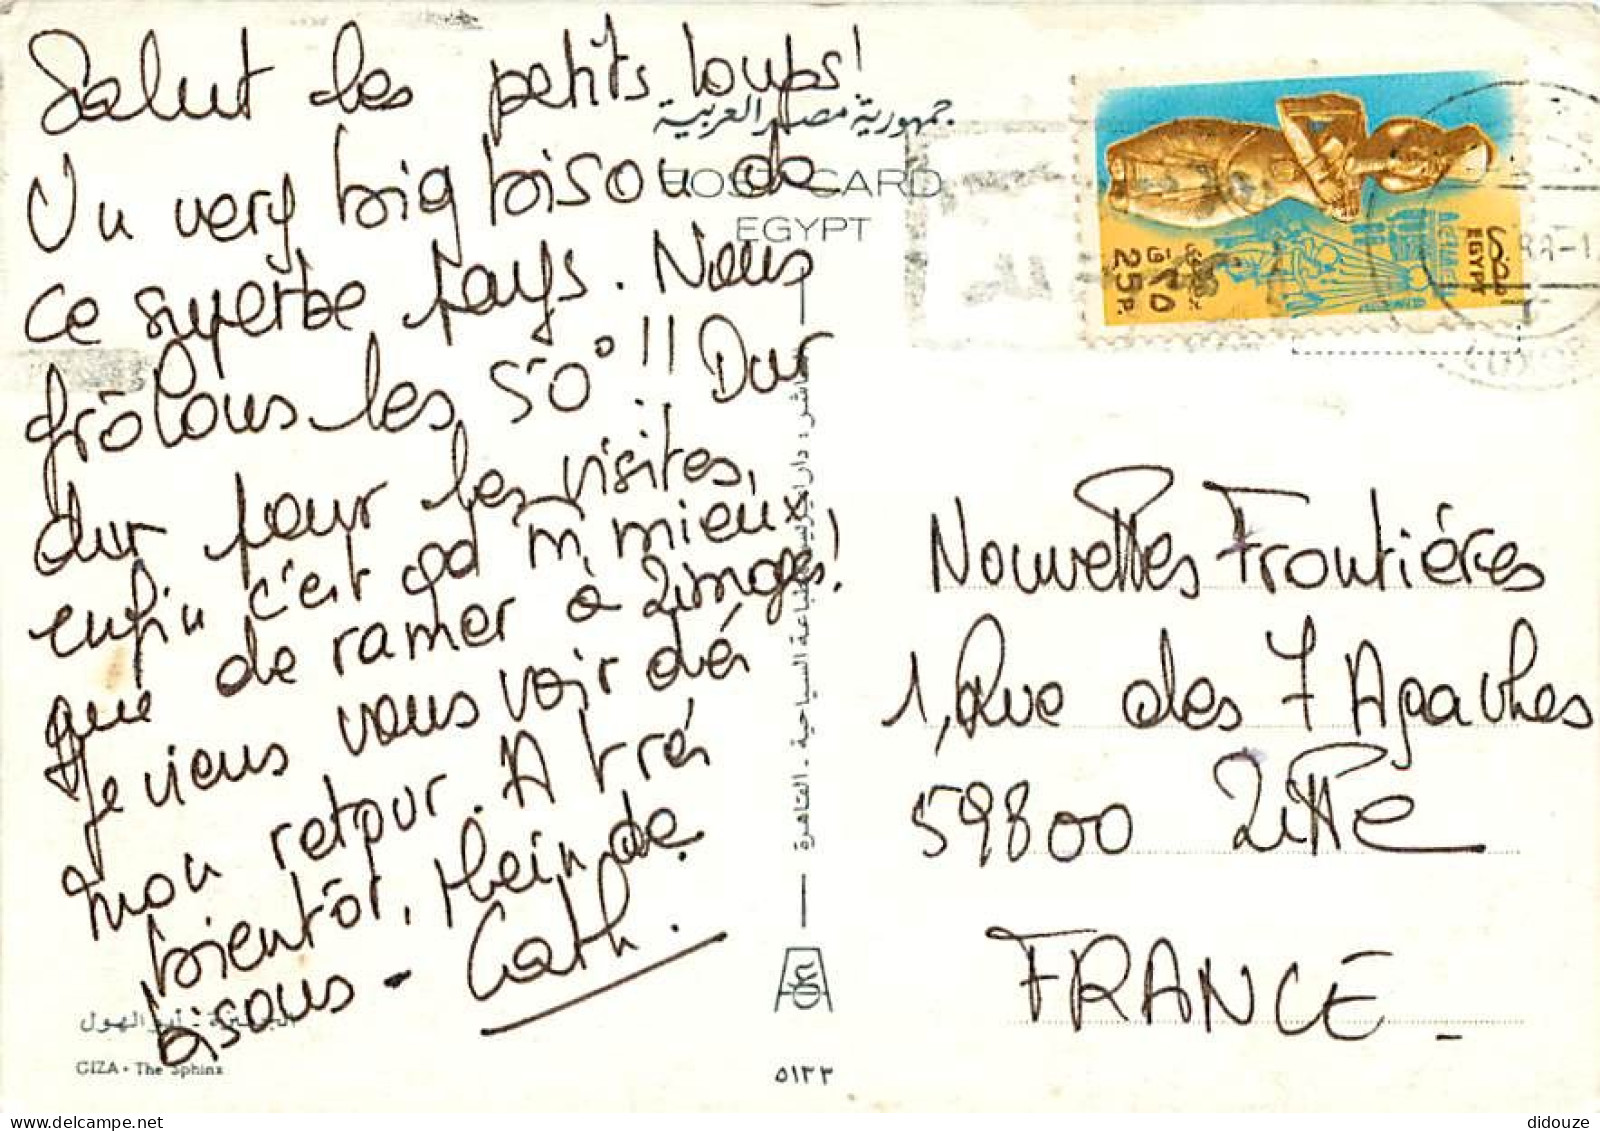 Salut les petits loups!
Un very big bisou de
ce superbe pays. Nous
frôlons les 50°!! Dur
dur pour les visites,
enfin c'est qd m̂ mieux
que de ramer à Limoges!
Je viens vous voir dés
mon retour. A trés
bientôt, plein de
bisous - Cath.
جمهورية مصر العربية
POST CARD
EGYPT
الجيزة - أبو الهول
GIZA - The Sphinx
٥١٣٣
مصر
EGYPT
25 P.
Nouvelles Frontiéres
1, Rue des 7 Agaches
59800 Lille
FRANCE
didouze